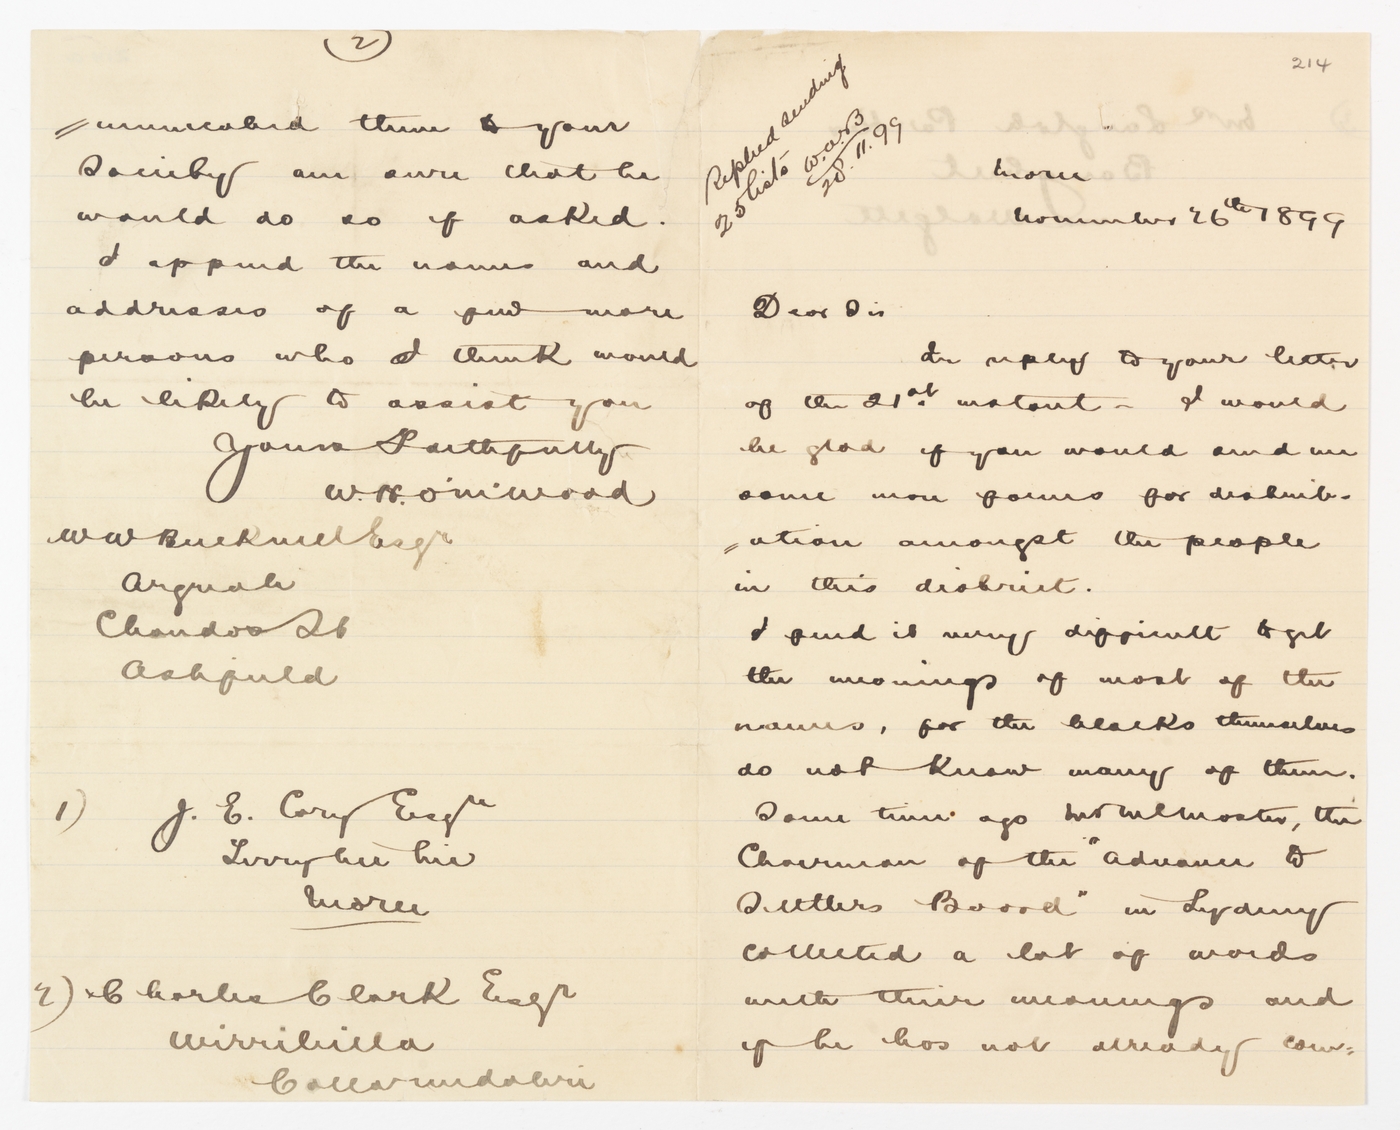 214
Replied sending
25 lists W.A.B
28.11.99
Moree
November 26th 1899
Dear Sir
In reply to your letter
of the 21st instant - I would
be glad if you would send me
some more forms for distrib-
=ution amongst the people
in this district.
I find it very difficult to get
the meanings of most of the
names, for the blacks themselves
do not know many of them.
Some time ago Mr McMaster, the
Chairman of the "Advance to
Settlers Board" in Sydney
collected a lot of words
with their meanings and
if he has not already com=
(2)
=municated them to your
Society am sure that he
would do so if asked.
I append the names and
addresses of a few more
persons who I think would
be likely to assist you
Yours Faithfully
W. W. Bucknell Esqr
Arguah
Chandos St
Ashfield
1) J. E. Cory Esqre
Moree
2) Charles Clark Esqr
Collarendabri